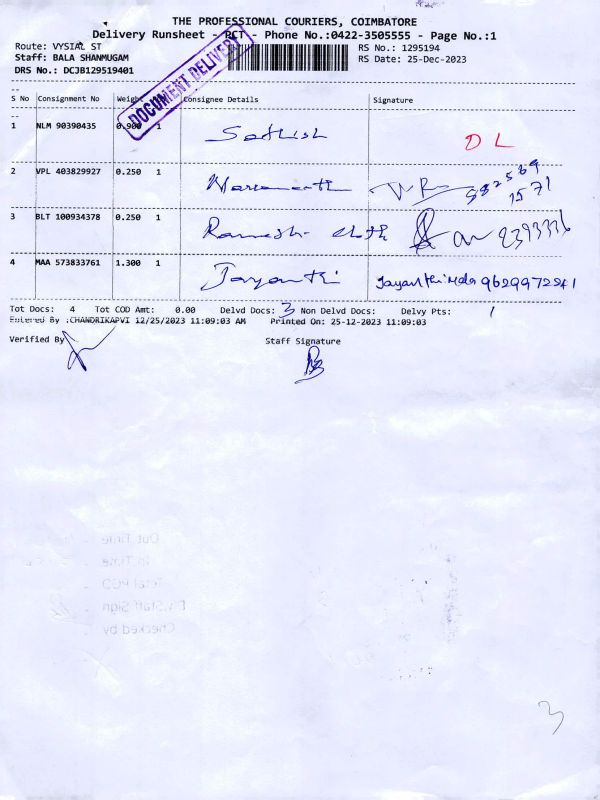 THE PROFESSIONAL COURIERS, COIMBATORE
Delivery Runsheet - PCT - Phone No.:0422-3505555 - Page No.:1
Route: VYSIAL ST RS No.: 1295194
Staff: BALA SHANMUGAM RS Date: 25-Dec-2023
DRS No.: DCJB129519401
DOCUMENT DELIVERY
S No Consignment No Weight Consignee Details Signature
1 NLM 90390435 0.900 1 Sathish D L
2 VPL 403829927 0.250 1
3 BLT 100934378 0.250 1 Ramesh cloth
4 MAA 573833761 1.300 1 Jayanthi Jayanthimala 9629972241
Tot Docs: 4 Tot COD Amt: 0.00 Delvd Docs: 3 Non Delvd Docs: Delvy Pts: 1
Entered By :CHANDRIKAPVI 12/25/2023 11:09:03 AM Printed On: 25-12-2023 11:09:03
Verified By Staff Signature
Out Time
In Time
Total POD
Checked by
3